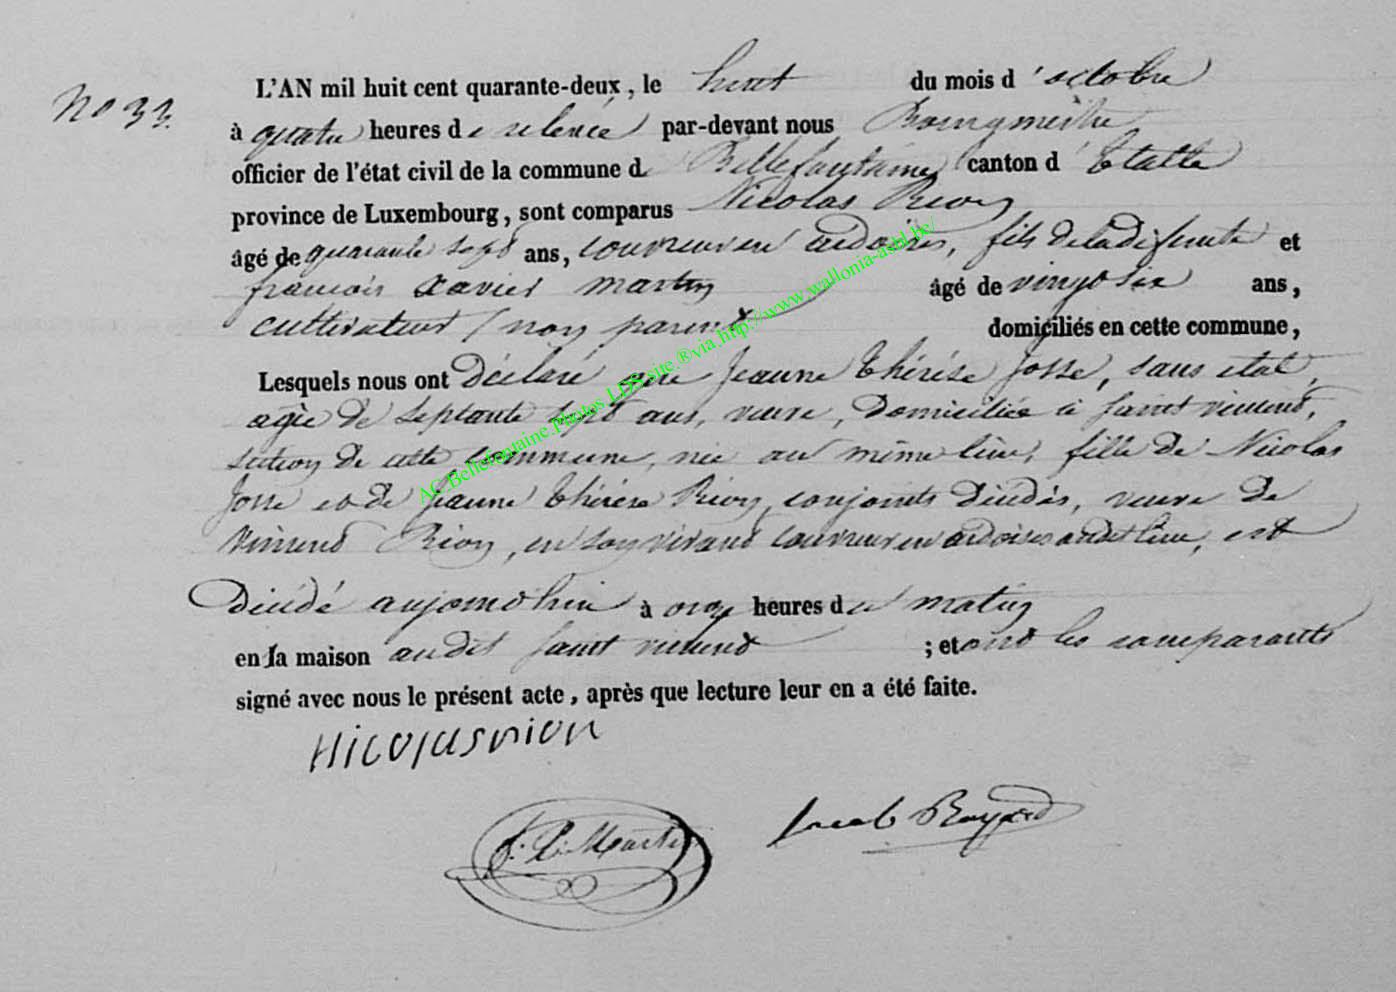 No 33.
L'AN mil huit cent quarante-deux, le huit du mois d'octobre
à quatre heures de relevée par-devant nous Bourgmestre
officier de l'état civil de la commune de Bellefontaine canton d'Etalle
province de Luxembourg, sont comparus Nicolas Rion
âgé de quarante sept ans, couvreur en ardoises, fils de la défunte et
françois xavier martin âgé de vingt six ans,
cultivateur (non parent domiciliés en cette commune,
Lesquels nous ont déclaré que Jeanne thérèse Josse, sans état,
agée de septante sept ans, veuve, domiciliée à saint vincent,
section de cette commune, née au même lieu, fille de Nicolas
Josse et de Jeanne thérèse Rion, conjoints décédés, veuve de
vincent Rion, en son vivant couvreur en ardoises audit lieu, est
décédé aujourd'hui à onze heures du matin
en la maison audit saint vincent ; et ont les comparants
signé avec nous le présent acte, après que lecture leur en a été faite.
nicolas rion
f. X. Martin
Jacob Royard
AC.Bellefontaine.Photos LDS site ®via.http://www.wallonia-asbl.be/